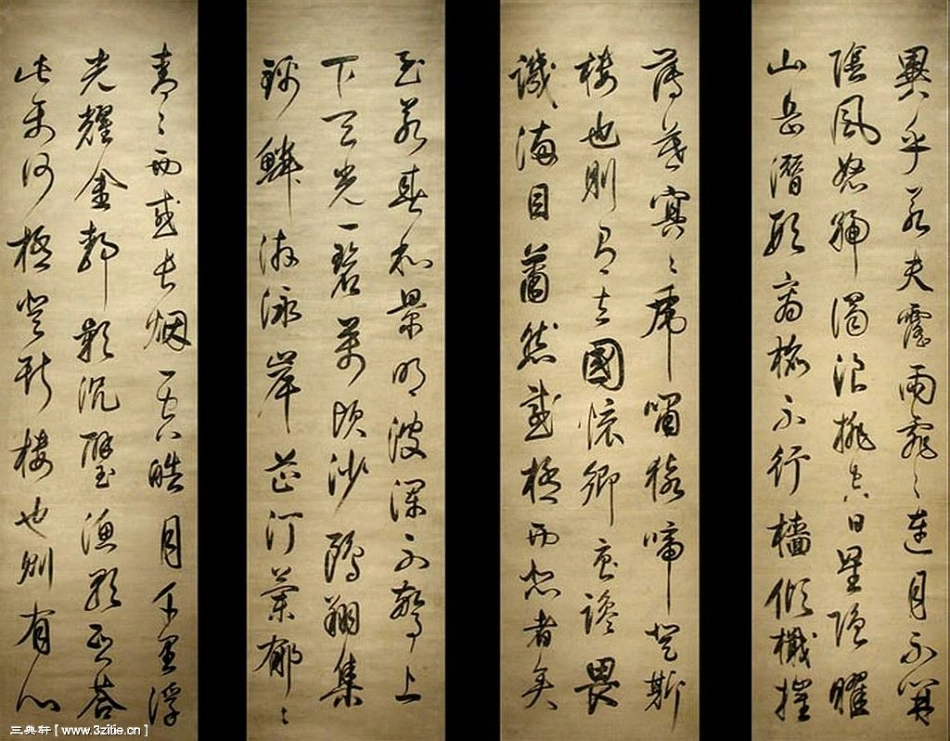 異乎若夫霪雨霏〻連月不開
陰風怒號濁浪排空日星隱曜
山岳潛形商旅不行檣傾檝摧
薄暮冥〻虎嘯猿啼登斯
樓也則有去國懷鄉憂讒畏
譏滿目蕭然感極而悲者矣
至若春和景明波瀾不驚上
下天光一碧萬頃沙鷗翔集
錦鱗游泳岸芷汀蘭郁〻
青〻而或長烟一空皓月千里浮
光耀金靜影沉璧漁歌互答
此樂何極登斯樓也則有心
三典轩[www.3zitie.cn]